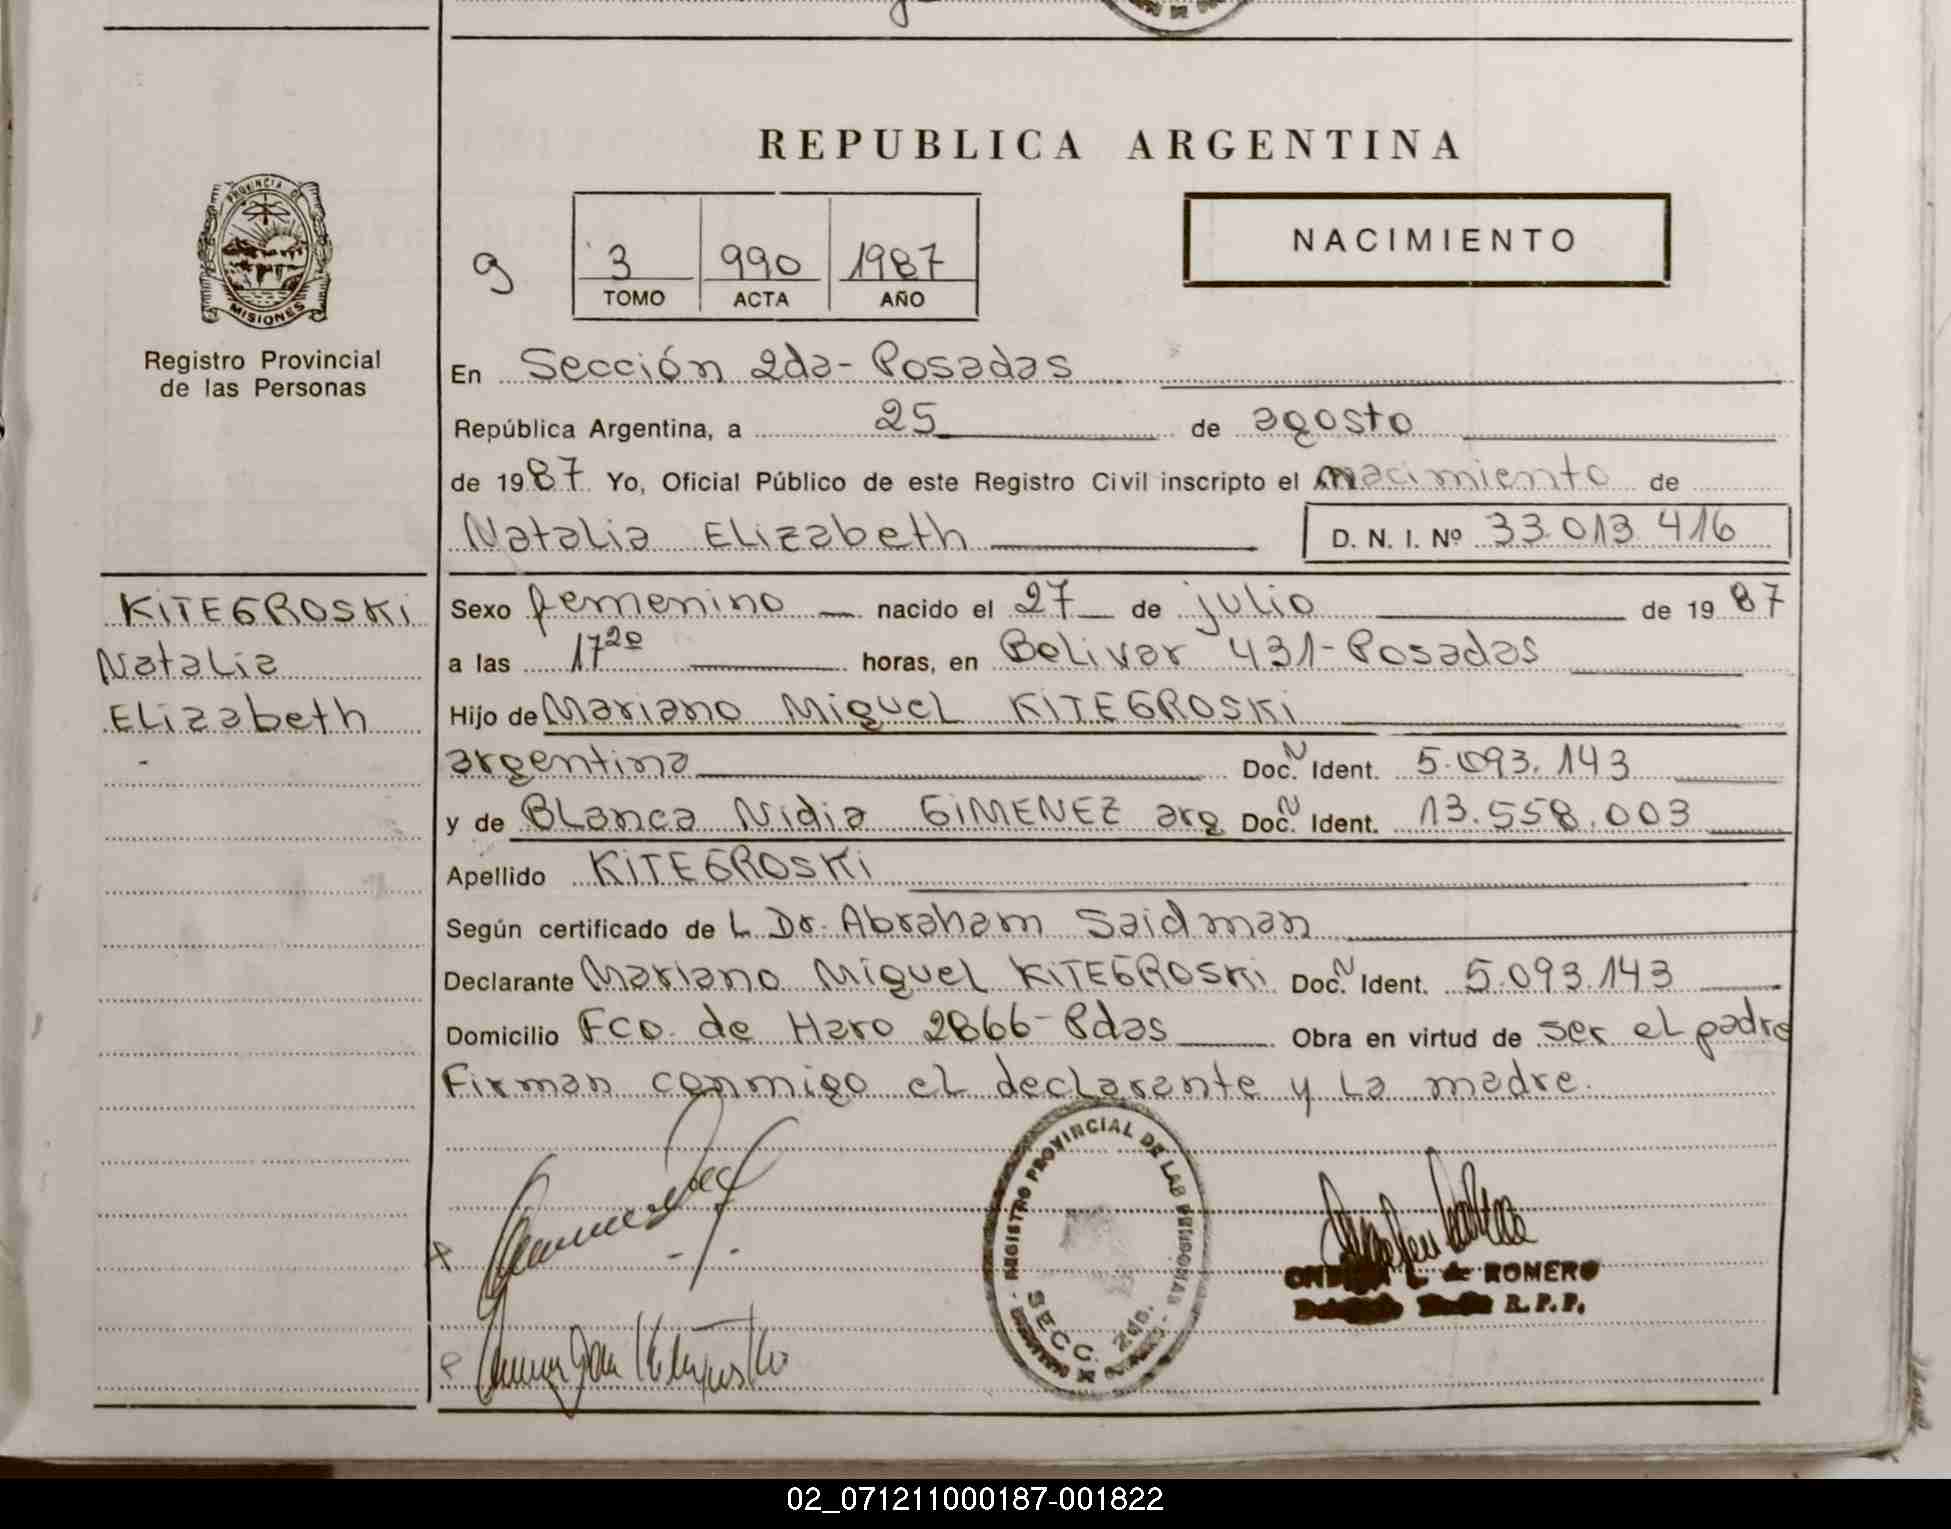 REPUBLICA ARGENTINA
PROVINCIA DE
MISIONES
Registro Provincial
de las Personas
9
3 990 1987
TOMO ACTA AÑO
NACIMIENTO
En Sección 2da- Posadas
República Argentina, a 25 de agosto
de 1987 Yo, Oficial Público de este Registro Civil inscripto el nacimiento de
Natalia Elizabeth D. N. I. Nº 33.013.416
KITEGROSKI
Natalia
Elizabeth
-
Sexo femenino nacido el 27 de julio de 1987
a las 17 20 horas, en Bolivar 431- Posadas
Hijo de Mariano Miguel KITEGROSKI
argentina Doc. N Ident. 5.093.143
y de Blanca Nidia GIMENEZ arg Doc. N Ident. 13.558.003
Apellido KITEGROSKI
Según certificado de L. Dr. Abraham Saidman
Declarante Mariano Miguel KITEGROSKI Doc. N Ident. 5.093.143
Domicilio Fco. de Haro 2866- Pdas Obra en virtud de ser el padre
Firman conmigo el declarante y la madre.
REGISTRO PROVINCIAL DE LAS PERSONAS
SECC. 2da.
L. de ROMERO
R.P.P.
02_071211000187-001822